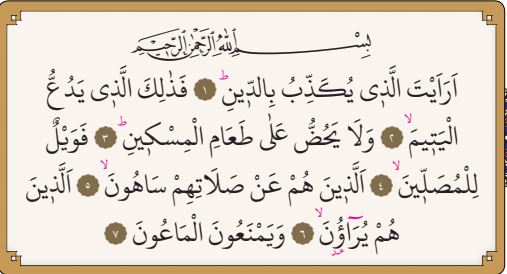 بِسْمِ اللّٰهِ الرَّحْمٰنِ الرَّحٖيمِ
اَرَاَيْتَ الَّذٖى يُكَذِّبُ بِالدّٖينِؕ ١ فَذٰلِكَ الَّذٖى يَدُعُّ
الْيَتٖيمَۙ ٢ وَلَا يَحُضُّ عَلٰى طَعَامِ الْمِسْكٖينِؕ ٣ فَوَيْلٌ
لِلْمُصَلّٖينَۙ ٤ اَلَّذٖينَ هُمْ عَنْ صَلَاتِهِمْ سَاهُونَۙ ٥ اَلَّذٖينَ
هُمْ يُرَٓاؤُ۫نَۙ ٦ وَيَمْنَعُونَ الْمَاعُونَ ٧